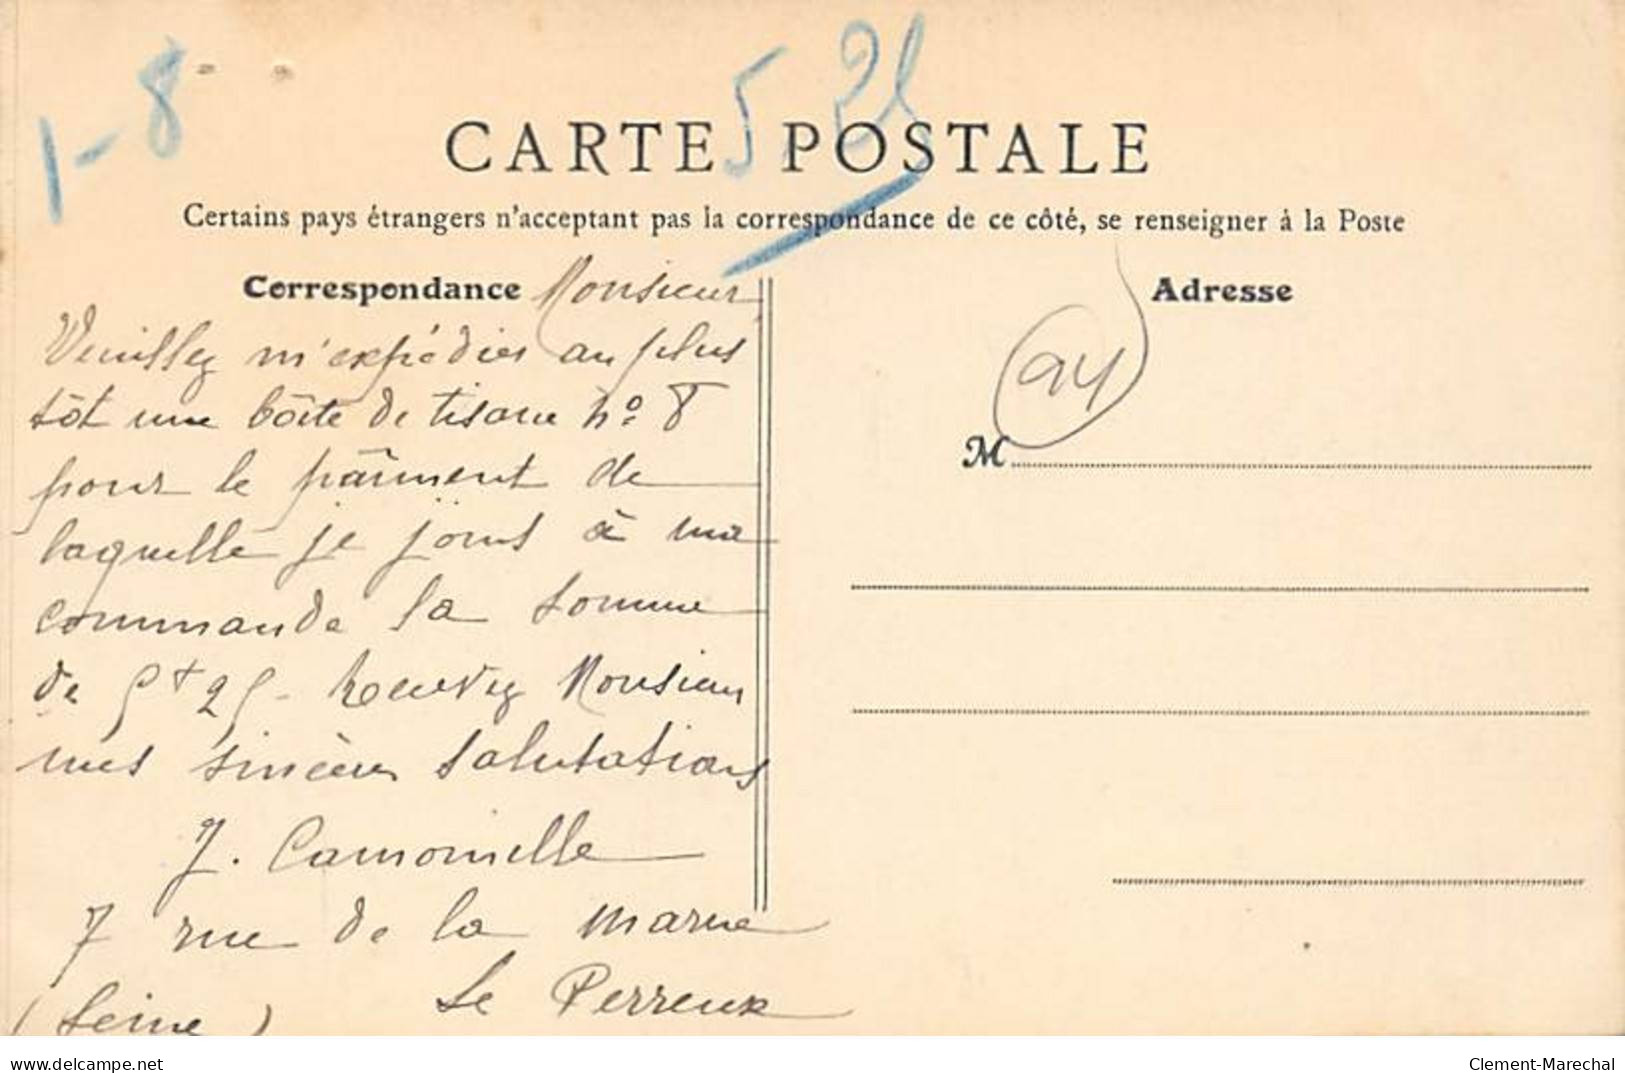 1-8
5,25
CARTE POSTALE
Certains pays étrangers n'acceptant pas la correspondance de ce côté, se renseigner à la Poste
Correspondance
Adresse
Monsieur
Veuillez m'expédier au plus
tôt une bôite de tisane no 8
pour le paîment de
laquelle je joins à ma
commande la somme
de 5f25 - Recevez Monsieur
mes sincères salutations
J. Camomille
7 rue de la marne
Le Perreux
(Seine)
94
M
delcampe.net
Clement-Marechal